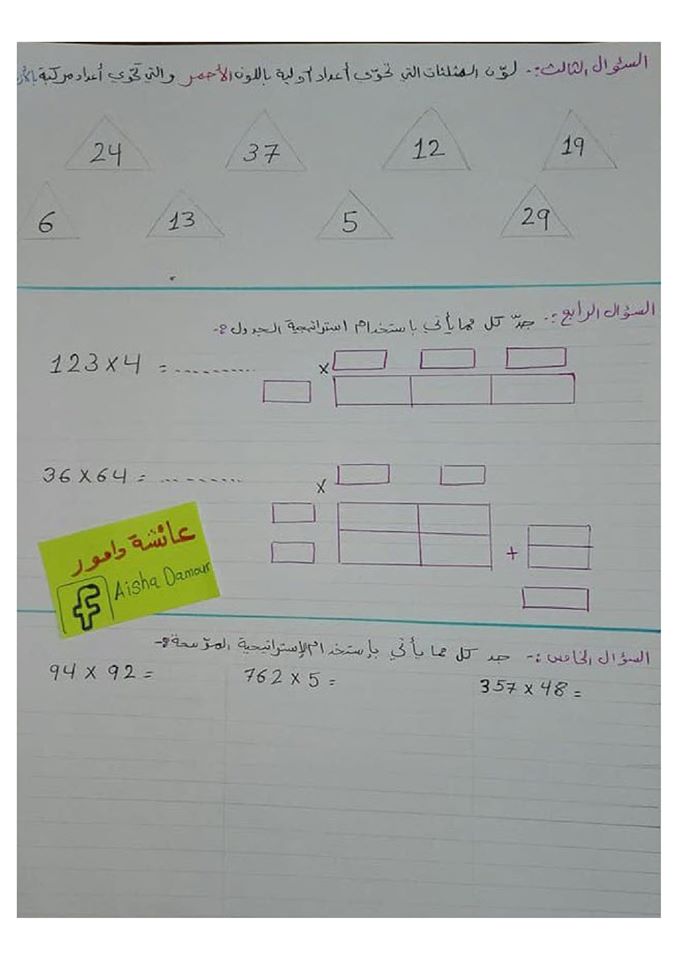 السؤال الثالث:- لوّن المثلثات التي تحوّي أعداد أولية باللون الأحمر والتي تحّوي أعداد مركبة
24 37 12 19
6 13 5 29
السؤال الرابع:- جدّ كل مما يأتي باستخدام استراتيجية الجدول:-
123 x 4 = ......... x
36 x 64 = ......... x
+
عائشة دامور
Aisha Damour
f
السؤال الخامس:- جد كل مما يأتي بإستخدام الإستراتيجية الموّسعة:-
94 x 92 = 762 x 5 = 357 x 48 =